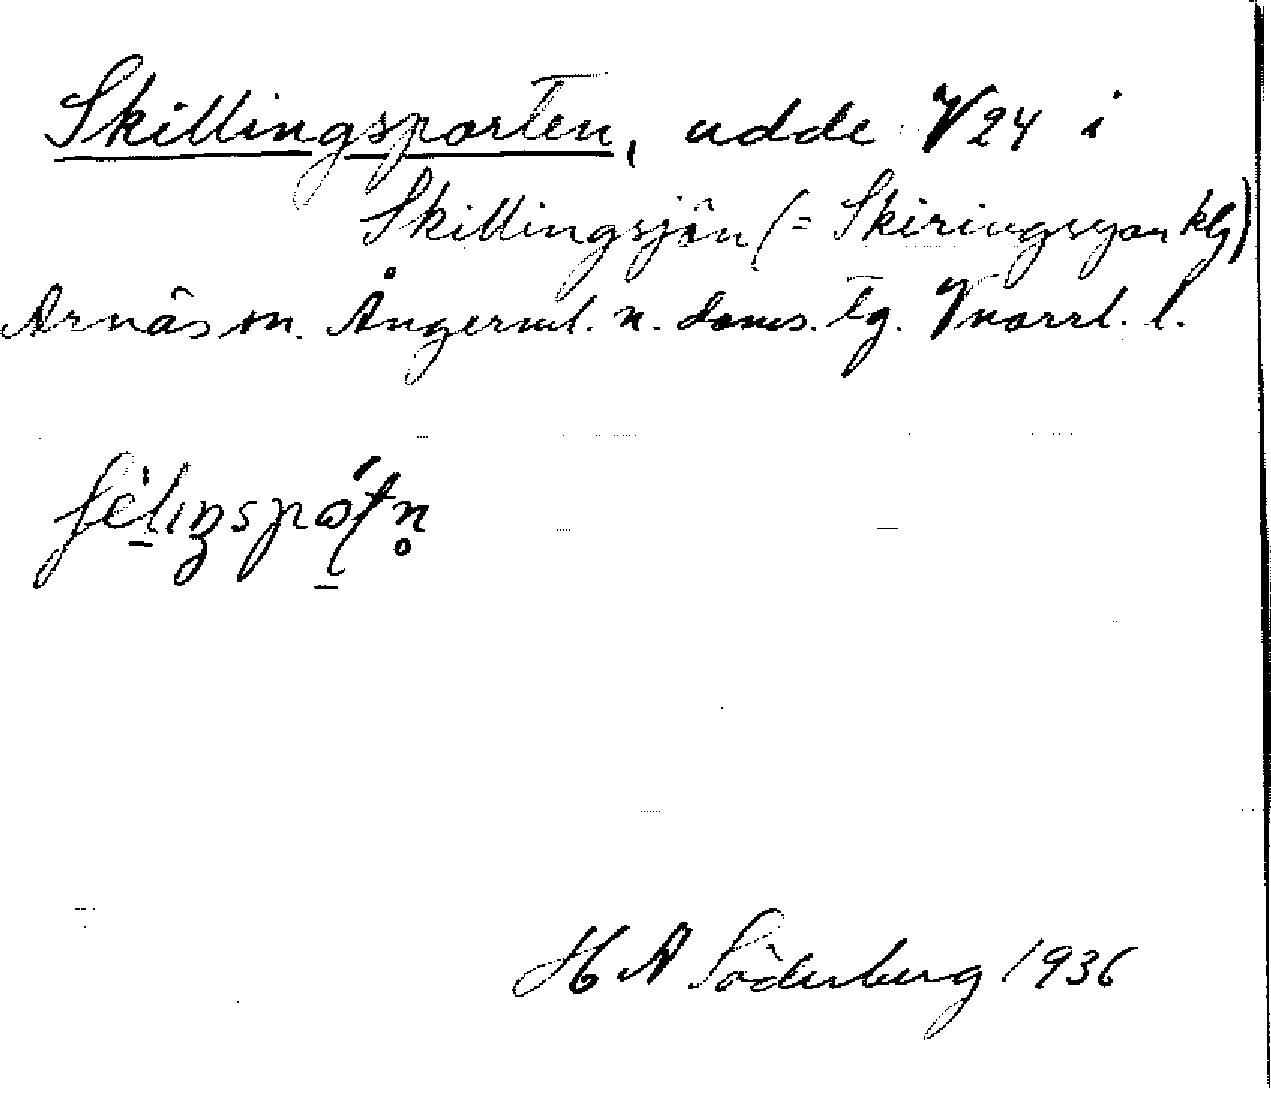 Skillingsporten, udde V24 i
Skillingsjön (= Skiringsgan klg)
Arnäs sn. Ångerml. n. doms. tg. Vnorrl. l.
H A Söderberg 1936